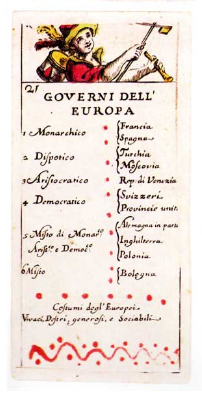 21
GOVERNI DELL'
EUROPA
1 Monarchico {Francia
Spagna
2 Dispotico {Turchia
Moscovia
3 Aristocratico Rep. di Venezia
4 Democratico {Svizzeri
Provincie unite
5 Misto di Monar.º {Alemagna in parte
Arist.º e Democ.º Inghilterra
Polonia
6 Misto {Bologna
Costumi degl'Europei
Vivaci, Destri, generosi, e Sociabili